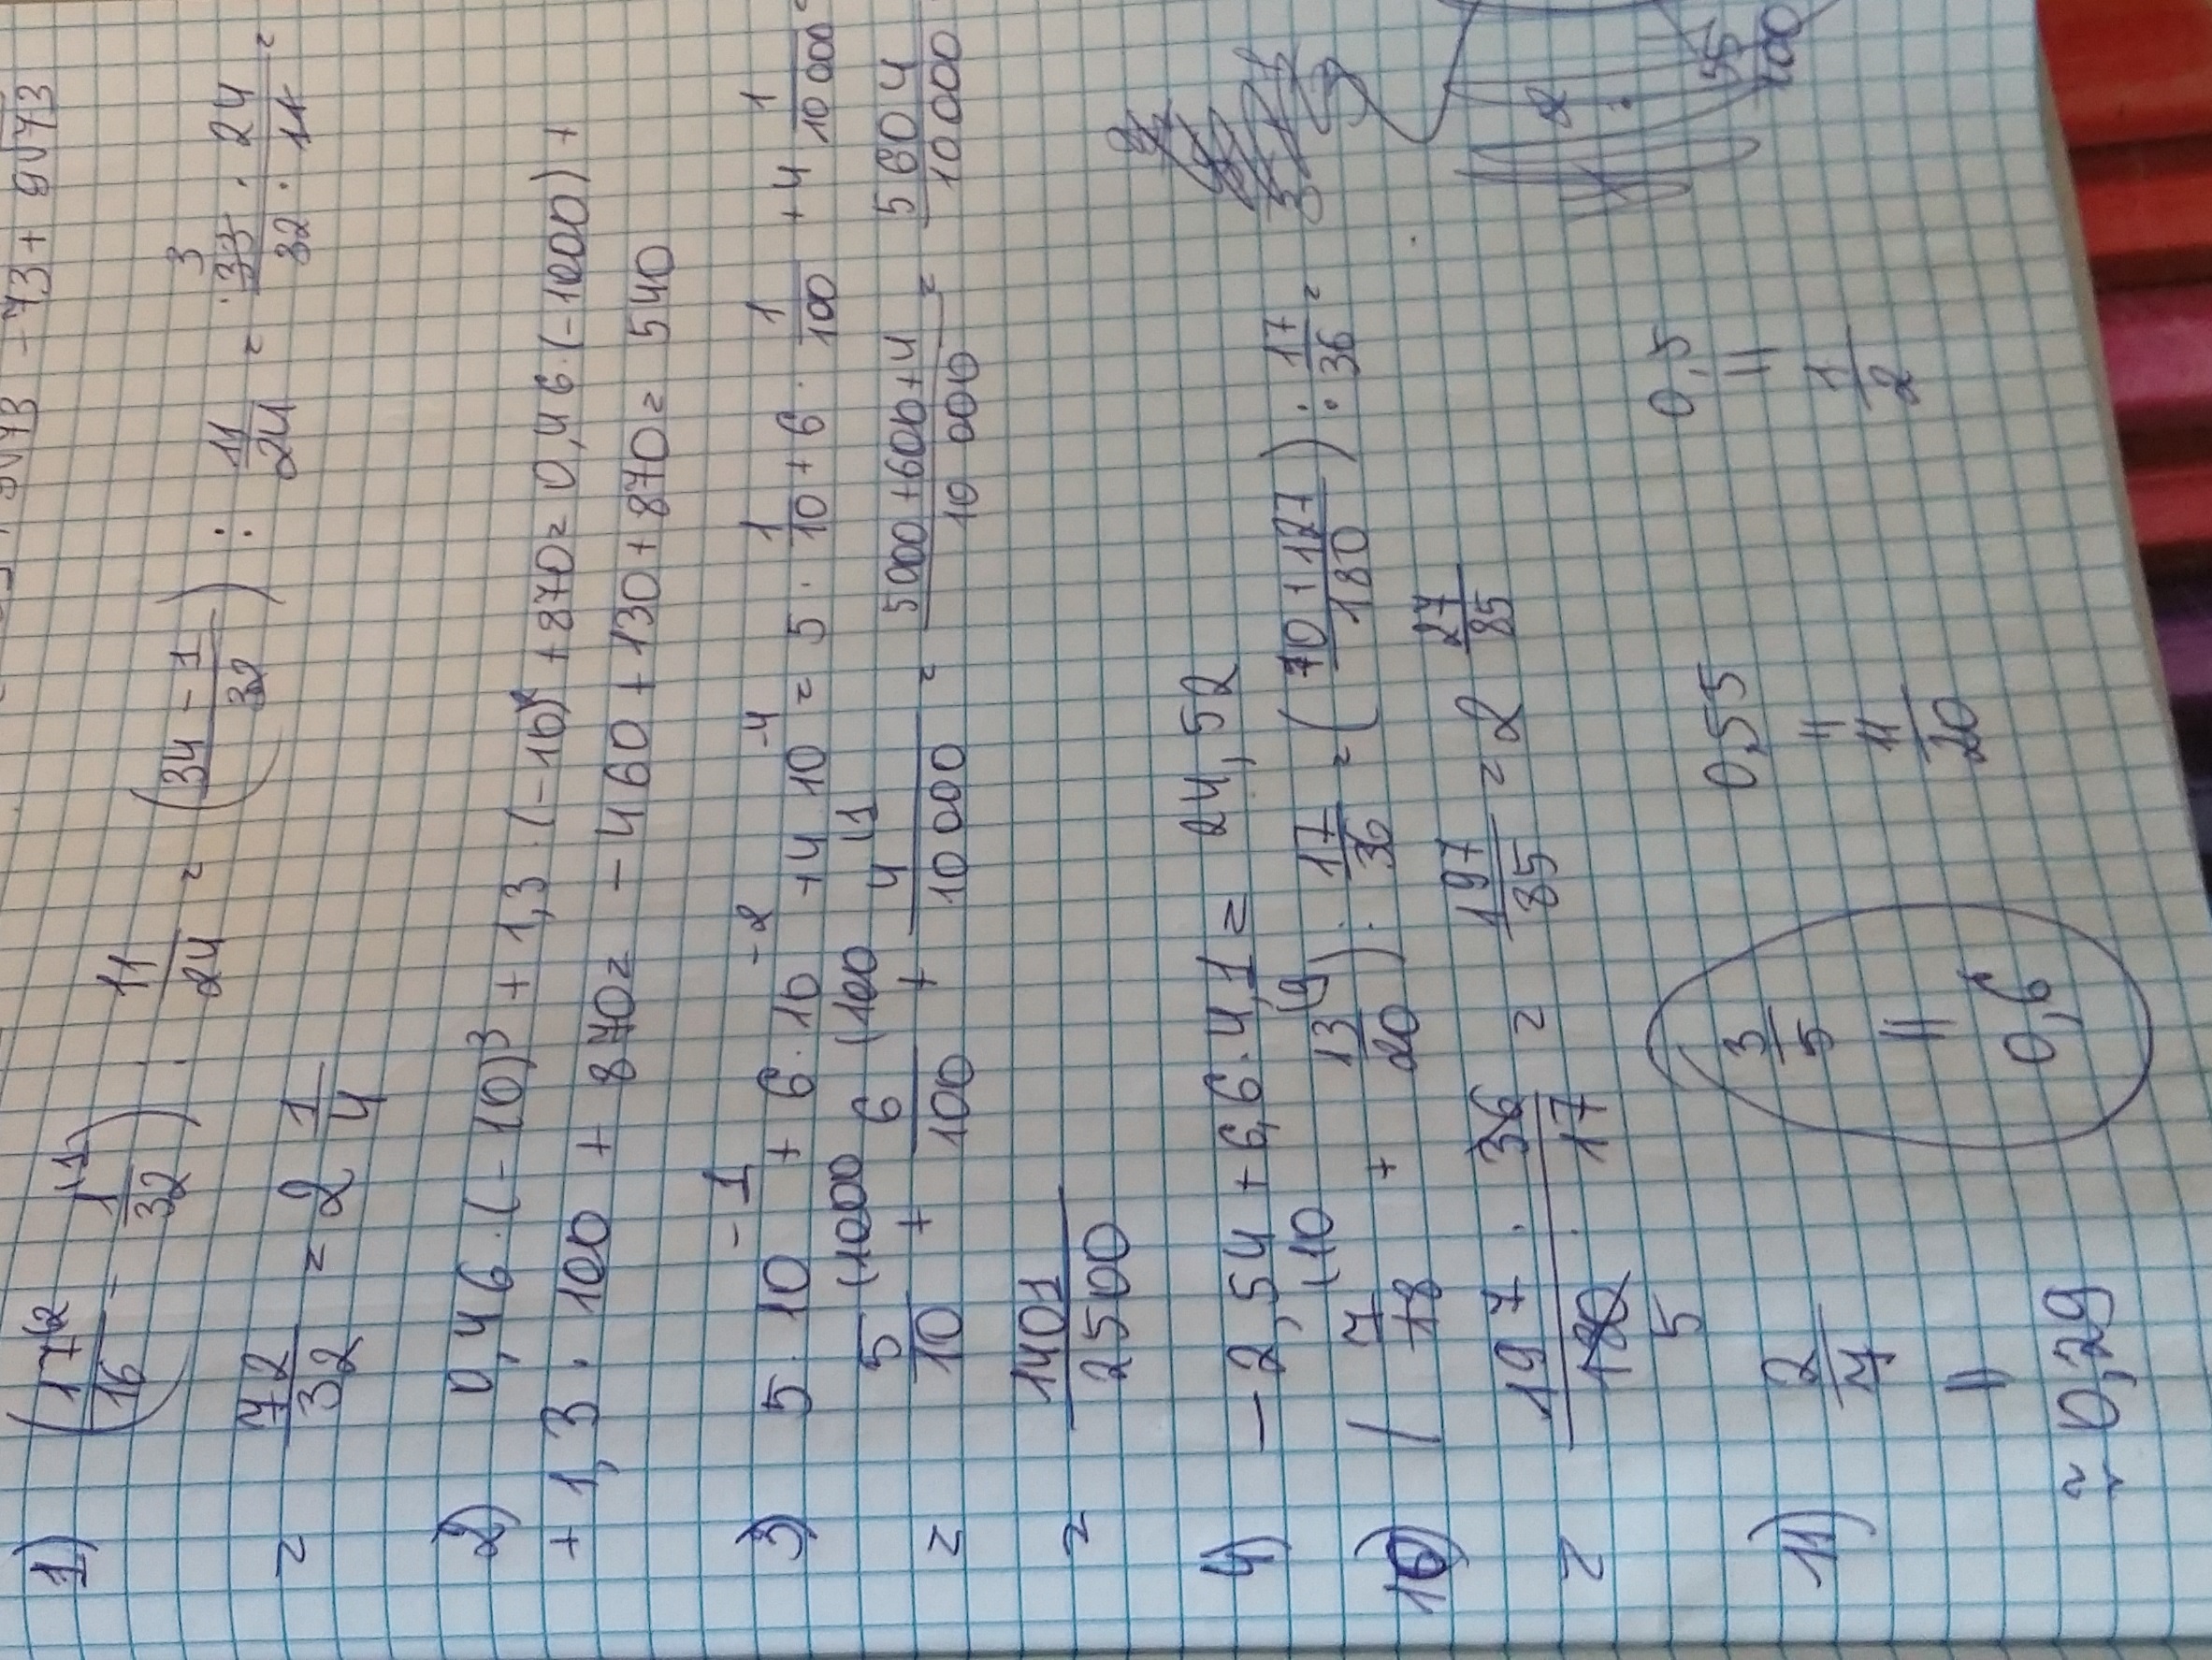 - 73 + 9√73
1) (17(2/16 - 1(1/32) : 11/24 = (34 - 1/32) : 11/24 = 3 33 · 24/32 · 11 =
= 72/32 = 2 1/4
2) 0,46 · (-10)³ + 1,3 · (-10)² + 870 = 0,46 · (-1000) +
+ 1,3 · 100 + 870 = - 460 + 130 + 870 = 540
3) 5 · 10⁻¹ + 6 · 10⁻² + 4 10⁻⁴ = 5 · 1/10 + 6 · 1/100 + 4 1/10 000 =
= 5 (1000/10 + 6 (100/100 + 4 (1/10 000 = 5 000 + 600 + 4/10 000 = 5604/10 000 =
= 1401/2500
4) - 2,54 + 6,6 · 4,1 = 24,52
10) (7 (10/18 + 13 (9/20) : 17/36 = (70 + 127/180) : 17/36 =
= 197 · 36/180 · 17 = 197/85 = 2 27/85
5
11) 2/7 3/5 0,55 0,5
= = = =
≈ 0,29 0,6 11/20 1/2